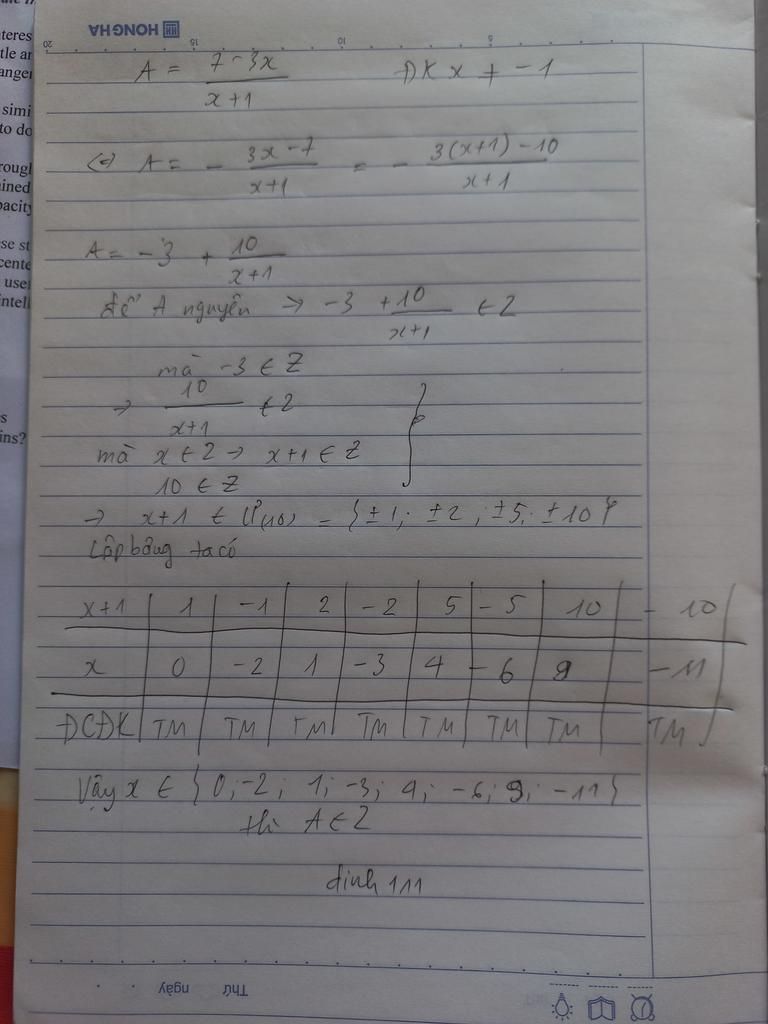 HONG HA
20 15 10 5
A = 7-3x / x+1 ĐK x ≠ -1
(=) A = - 3x-7 / x+1 = - 3(x+1)-10 / x+1
A = -3 + 10 / x+1
để A nguyên → -3 + 10 / x+1 ∈ Z
mà -3 ∈ Z
→ 10 / x+1 ∈ Z
mà x ∈ Z → x+1 ∈ Z
10 ∈ Z
→ x+1 ∈ Ư(10) = {±1; ±2; ±5; ±10}
Lập bảng ta có
x+1 | 1 | -1 | 2 | -2 | 5 | -5 | 10 | -10
x | 0 | -2 | 1 | -3 | 4 | -6 | 9 | -11
ĐCĐK | TM | TM | TM | TM | TM | TM | TM | TM
Vậy x ∈ {0; -2; 1; -3; 4; -6; 9; -11}
thì A ∈ Z
đinh 111
Thứ ngày